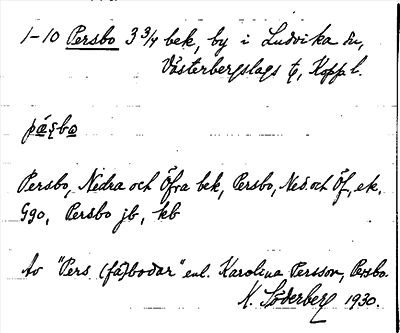 1-10 Persbo 3 3/4 bek, by i Ludvika sn,
Västerbergslags t, Koppb l.
pä̱ʂba̱
Persbo, Nedra och Öfra bek, Persbo, Ned. och Öf., ek.
Ggo, Persbo jb, kb
Av "Pers (fä)bodar" enl. Karolina Persson, Persbo.
K. Söderberg 1930.